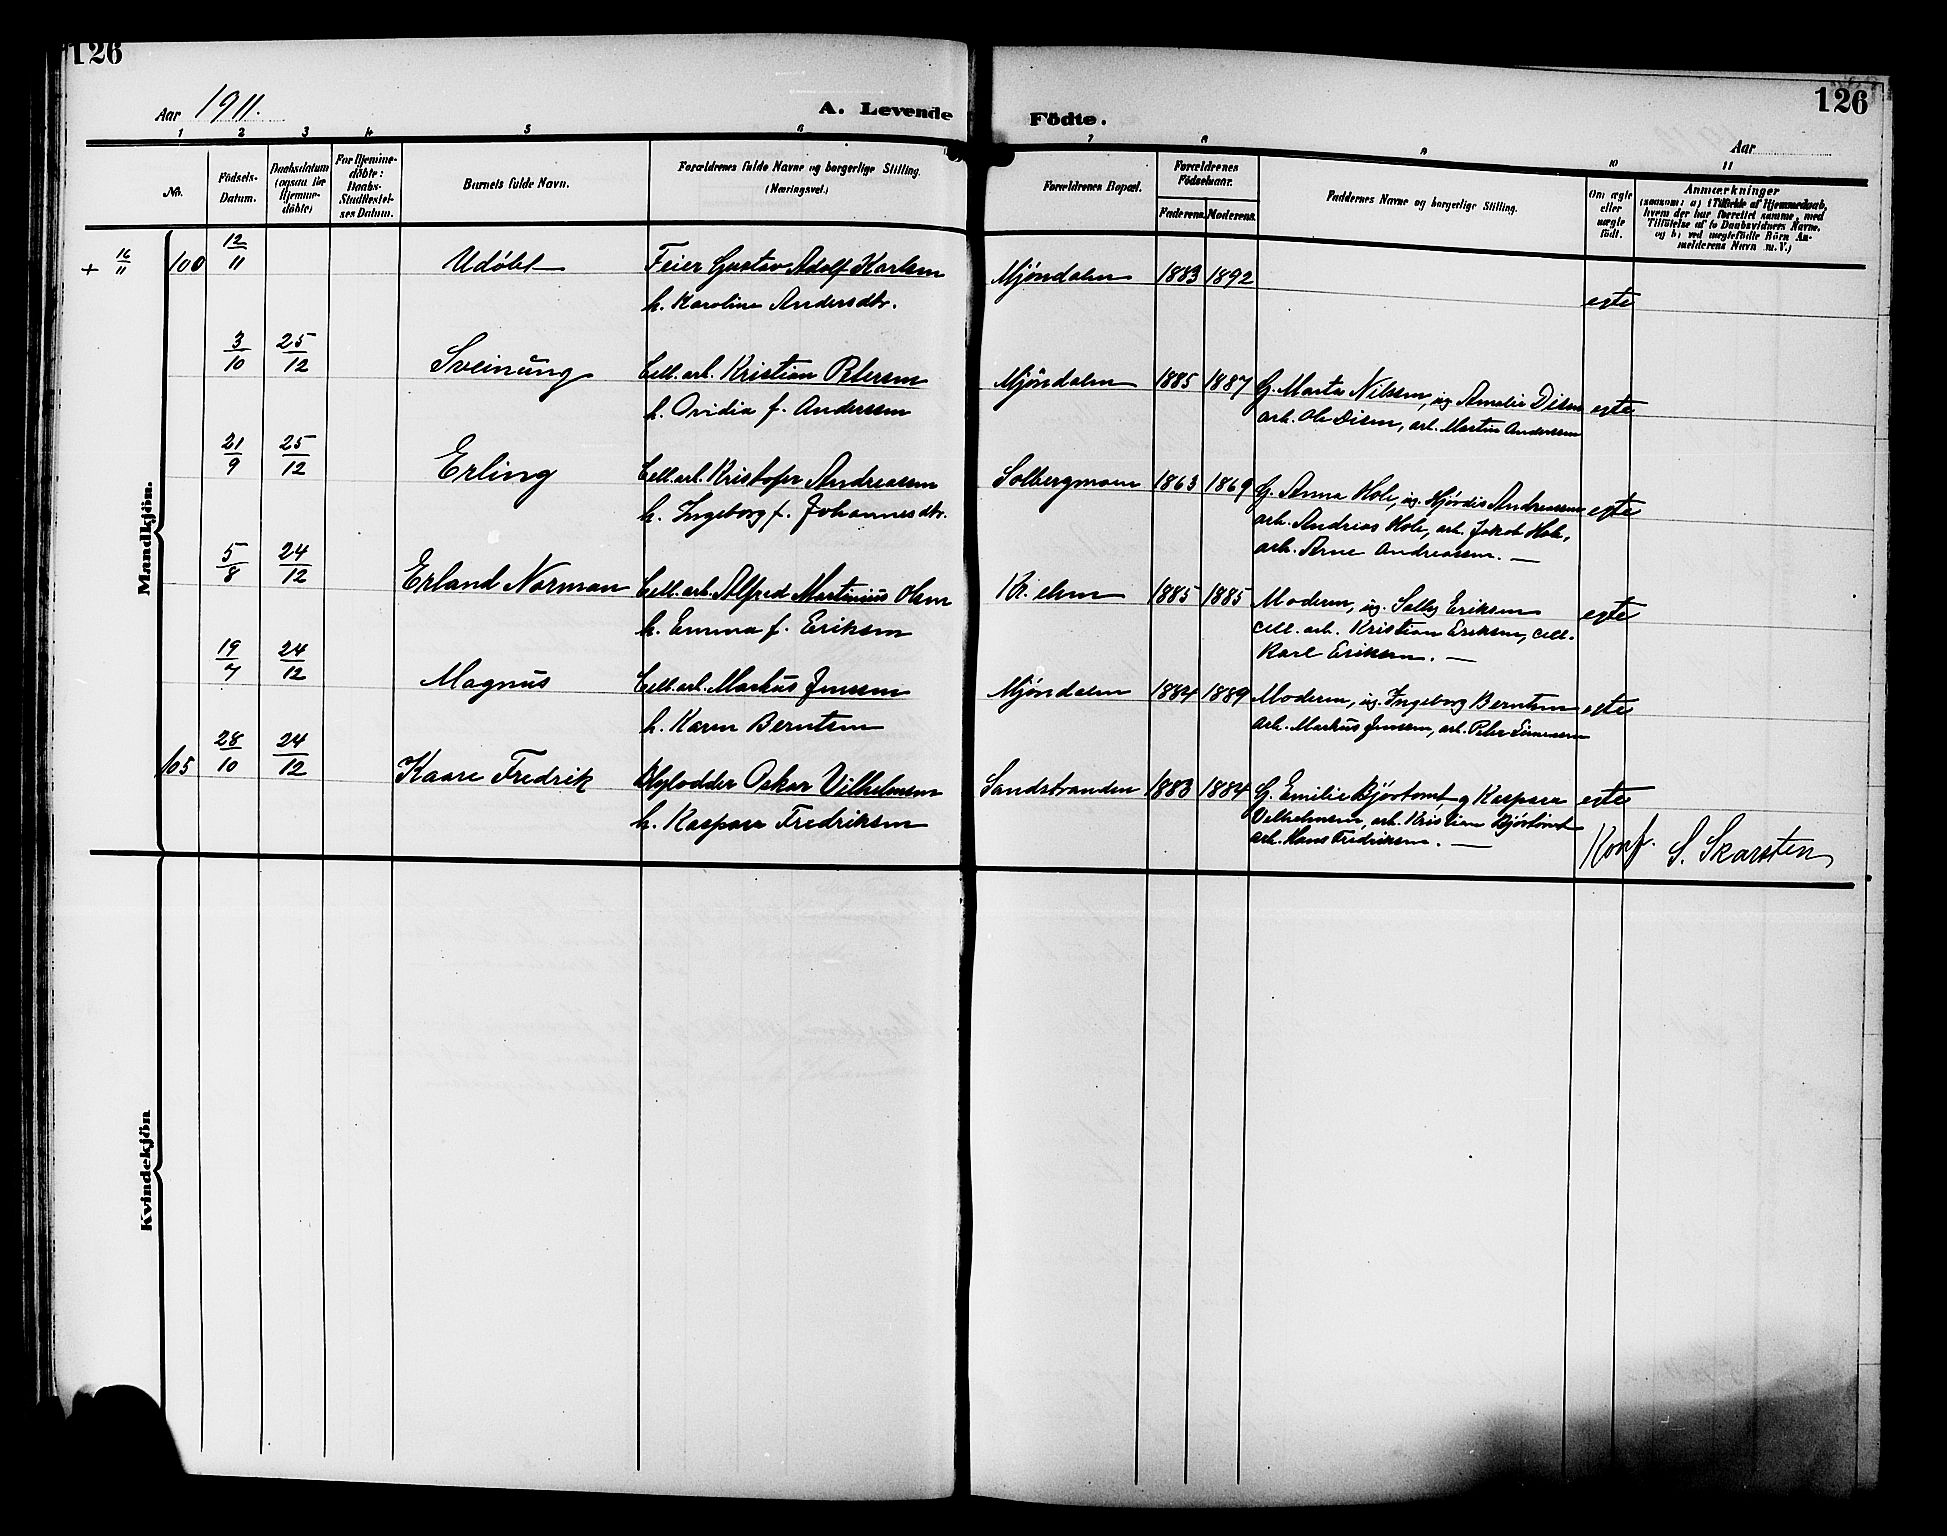 126
126
Aar 1911.
A. Levende Födte.
Aar
1 2 3 4 5 6 7 8 9 10 11
No.
Födsels-Datum.
Daabsdatum (ogsaa for Hjemme-döbte)
For Hjemme-döbte: Daabs-Stadfæstel-ses Datum.
Barnets fulde Navn.
Forældrenes fulde Navne og borgerlige Stilling. (Næringsvei.)
Forældrenes Bopæl.
Forældrenes Födselsaar.
Faderens. Moderens.
Faddernes Navne og borgerlige Stilling.
Om ægte eller uægte födt.
Anmærkninger
(saasom: a) i Tilfælde af Hjemmedaab, hvem der har forrettet samme, med Tilföielse af to Daabsvidners Navne, og b) ved uægtefödte Börn An-melderens Navn m. V.)
Mandkjön.
+ 16/11 100 12/11 Udöbt Feier Gustav Adolf Karlsen Mjøndalen 1883 1892
h. Karoline Andersdtr. egte
3/10 25/12 Sveinung Cell. arb. Kristian Petersen Mjøndalen 1885 1887 G. Marta Nilssen, ug. Amalie Disen egte
h. Ovidia f. Anderssen arb. Ole Disen, arb. Martin Anderssen
21/9 25/12 Erling Cell. arb. Kristofer Andreassen Solbergmoen 1863 1869 G. Anna Hole, ug. Hjørdis Andreassen egte
h. Ingeborg f. Johannesdtr. arb. Andreas Hole, arb. Jakob Hole,
arb. Arne Andreassen. —
5/8 24/12 Erland Norman Cell. arb. Alfred Martinius Olsen Kr. elven 1885 1885 Moderen, ug. Solby Eriksen egte
h. Emma f. Eriksen cell. arb. Kristian Eriksen, cell.
Karl Eriksen. —
19/7 24/12 Magnus Cell. arb. Markus Jenssen Mjøndalen 1884 1889 Moderen, ug. Ingeborg Berntsen egte
h. Karen Berntsen arb. Markus Jenssen, arb. Peter Simensen
105 28/10 24/12 Kaare Fredrik Oskar Vilhelmsen Sandstranden 1883 1884 G. Emilie Bjørtomt g Kaspara egte
h. Kaspara Fredriksen Vilhelmsen, arb. Kristian Bjørtomt
arb. Hans Fredriksen. —
Konf. S. Skarsten
Kvindekjön